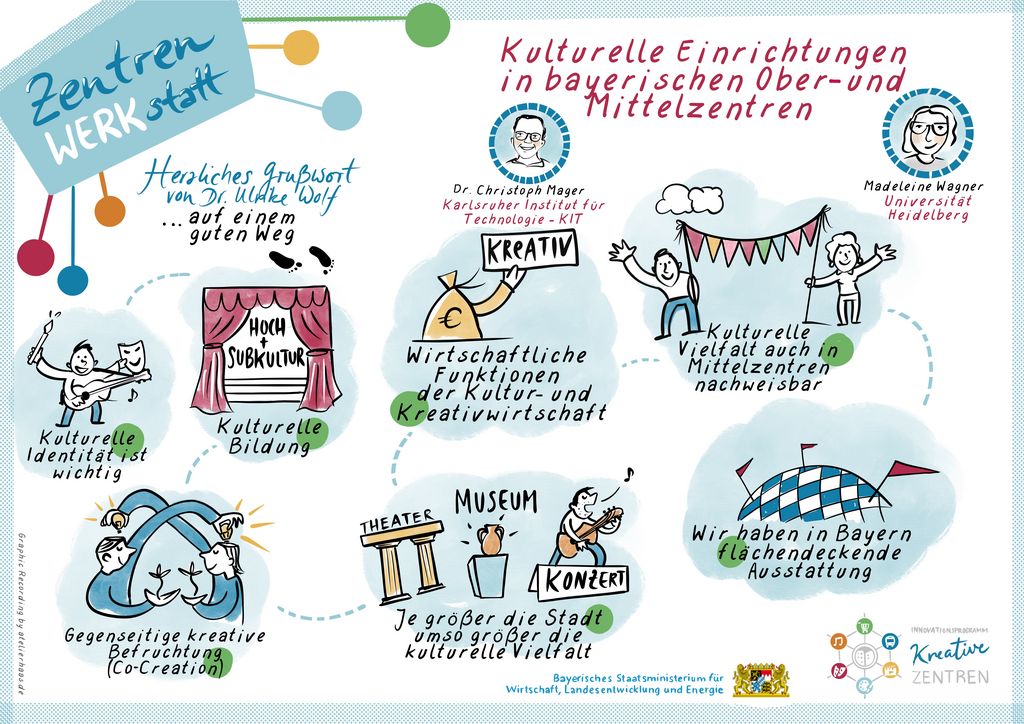 Zentren
WERKstatt
Herzliches Grußwort
von Dr. Ulrike Wolf
... auf einem
guten Weg
Kulturelle Einrichtungen
in bayerischen Ober-und
Mittelzentren
Dr. Christoph Mager
Karlsruher Institut für
Technologie - KIT
Madeleine Wagner
Universität
Heidelberg
Kulturelle
Identität ist
wichtig
HOCH
+
SUBKULTUR
Kulturelle
Bildung
KREATIV
€
Wirtschaftliche
Funktionen
der Kultur- und
Kreativwirtschaft
Kulturelle
Vielfalt auch in
Mittelzentren
nachweisbar
Gegenseitige kreative
Befruchtung
(Co-Creation)
THEATER
MUSEUM
KONZERT
Je größer die Stadt
umso größer die
kulturelle Vielfalt
Wir haben in Bayern
flächendeckende
Ausstattung
Graphic Recording by atelierhaas.de
Bayerisches Staatsministerium für
Wirtschaft, Landesentwicklung und Energie
INNOVATIONSPROGRAMM
Kreative
ZENTREN